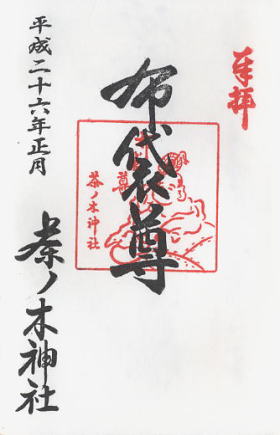 奉拝
布袋尊
茶ノ木神社
平成二十六年正月
茶ノ木神社